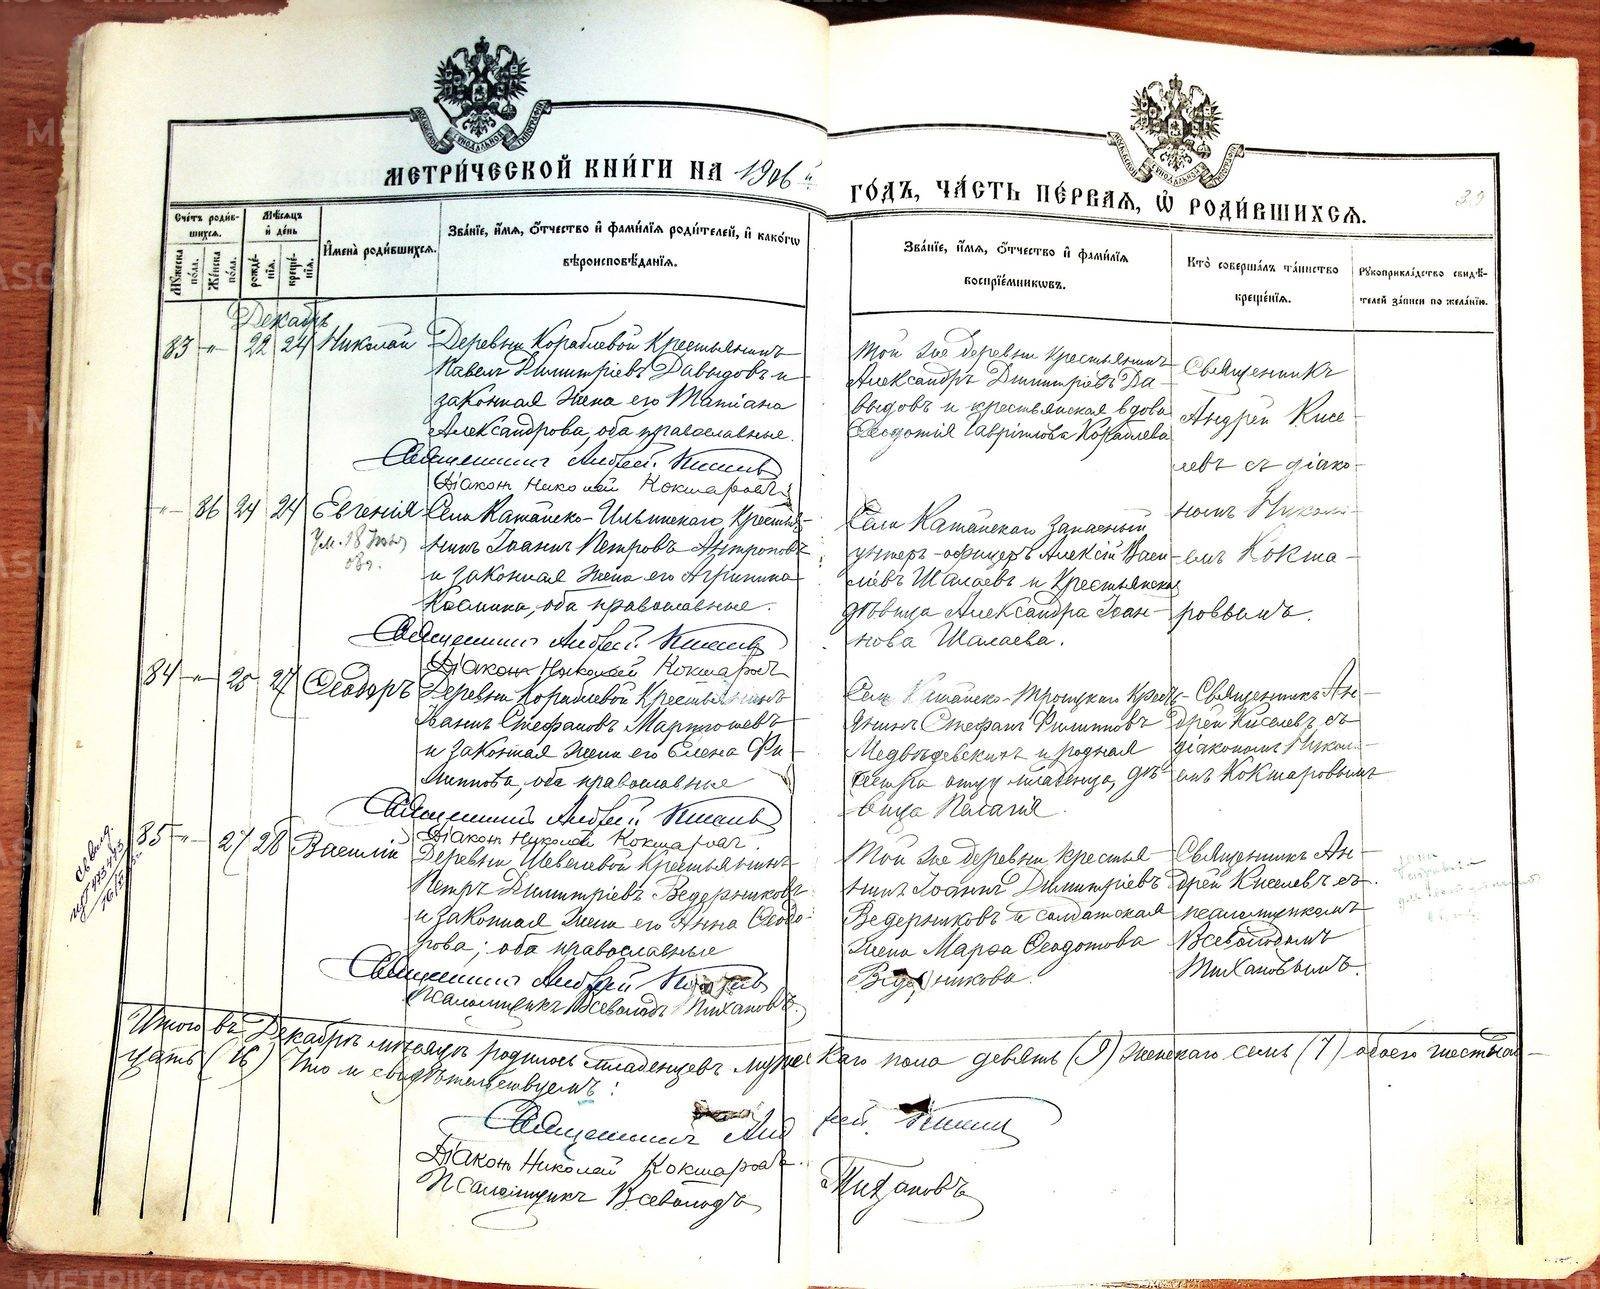 МЕТРИ́ЧЕСКОЙ КНИ́ГИ НА 1906й
ГО́ДЪ, ЧА́СТЬ ПЕ́РВАЯ, Ѽ РОДИ́ВШИХСЯ.
Сче́тъ роди́вшихся.
Му́жеска по́ла.
Же́нска по́ла.
Мѣ́сяцъ и де́нь
рожде́нія.
креще́нія.
И́мена роди́вшихся.
Зва́ніе, и́мя, ѻ́тчество и фами́лія роди́телей, и како́гѡ
вѣроисповѣ́данія.
Зва́ніе, и́мя, ѻ́тчество и фами́лія
воспріе́мникѡвъ.
Кто̀ соверша́лъ та́инство
креще́нія.
Рꙋкоприкла́дство свидѣ́-
телей за́писи по жела́нію.
Декабрь
83 -„- 22 24 Николай
Деревни Кораблевой Крестьянинъ
Павелъ Димитріевъ Давыдовъ и
законная жена его Татіана
Александрова, оба православные.
Священникъ Андрей Киселевъ
Діаконъ Николай Кокшаровъ
Той же деревни Крестьянинъ
Александръ Димитріевъ Да-
выдовъ и крестьянская вдова
Ѳеодотія Гавріилова Кораблева
Священникъ
Андрей Кисе-
левъ съ діако-
номъ Никола-
емъ Кокша-
ровымъ.
-„- 86 24 24 Евгенія
Ум. 18 Іюня
07г.
Села Катайско-Ильинскаго Крестья-
нинъ Іоаннъ Петровъ Антроповъ
и законная жена его Агрипина
Космина, оба православные.
Священникъ Андрей Киселевъ
Діаконъ Николай Кокшаровъ
Села Катайскаго запасный
унтеръ-офицеръ Алексій Васи-
ліевъ Шалаевъ и Крестьянская
дѣвица Александра Іоан-
нова Шалаева.
84 -„- 25 27 Ѳеодоръ
Деревни Кораблевой Крестьянинъ
Іоаннъ Стефановъ Мартюшевъ
и законная жена его Елена Фи-
липпова, оба православные
Священникъ Андрей Киселевъ
Діаконъ Николай Кокшаровъ.
Села Катайско-Троицкаго Кресть-
янинъ Стефанъ Филипповъ
Медвѣдевскихъ и родная
сестра отцу младенца, дѣ-
вица Пелагія
Священникъ Ан-
дрей Киселевъ съ
діакономъ Никола-
емъ Кокшаровымъ
85 -„- 27 28 Василій
Деревни Шевелевой Крестьянинъ
Петръ Димитріевъ Ведерниковъ
и законная жена его Анна Ѳеодо-
рова; оба православные
Священникъ Андрей Киселевъ
Псаломщикъ Всеволодъ Тихановъ.
Той же деревни Крестья-
нинъ Іоаннъ Димитріевъ
Ведерниковъ и солдатская
жена Марѳа Ѳеодотова
Ведерникова.
Священникъ Ан-
дрей Киселевъ съ
псаломщикомъ
Всеволодомъ
Тихановымъ.
Итого въ Декабрѣ мѣсяцѣ родилось младенцевъ мужескаго пола девять (9) женскаго семь (7) обоего шестнад-
цать (16) Что и свидѣтельствуемъ:
Священникъ Андрей Киселевъ
Діаконъ Николай Кокшаровъ.
Псаломщикъ Всеволодъ Тихановъ